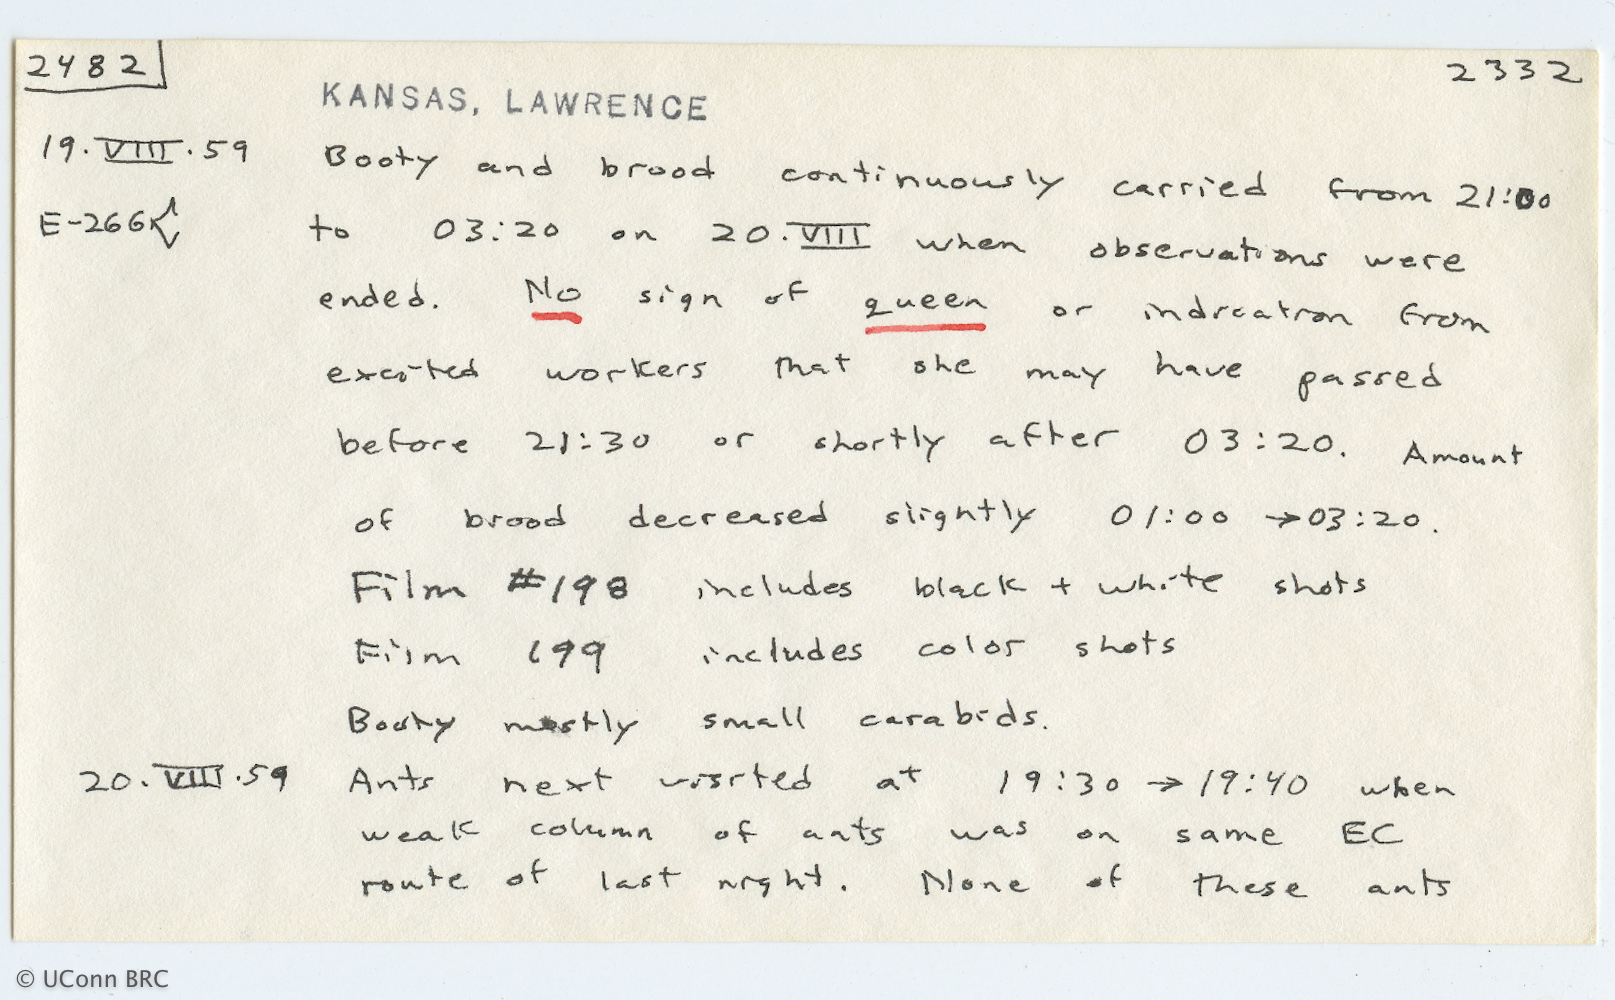 2482
2332
KANSAS, LAWRENCE
19.VIII.59 Booty and brood continuously carried from 21:00
E-266 to 03:20 on 20.VIII when observations were
ended. No sign of queen or indication from
excited workers that she may have passed
before 21:30 or shortly after 03:20. Amount
of brood decreased slightly 01:00 → 03:20.
Film #198 includes black + white shots
Film 199 includes color shots
Booty mostly small carabids.
20.VIII.59 Ants next visited at 19:30 → 19:40 when
weak column of ants was on same EC
route of last night. None of these ants
© UConn BRC